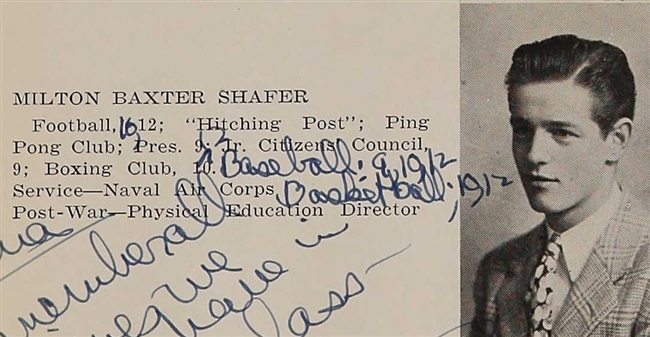 MILTON BAXTER SHAFER
Football, 10, 12; "Hitching Post"; Ping
Pong Club; Pres. 9; Jr. Citizens Council,
9; Boxing Club, 10. Baseball; 9, 1912
Service—Naval Air Corps Basketball; 1912
Post-War—Physical Education Director
remember all
we
have in
class